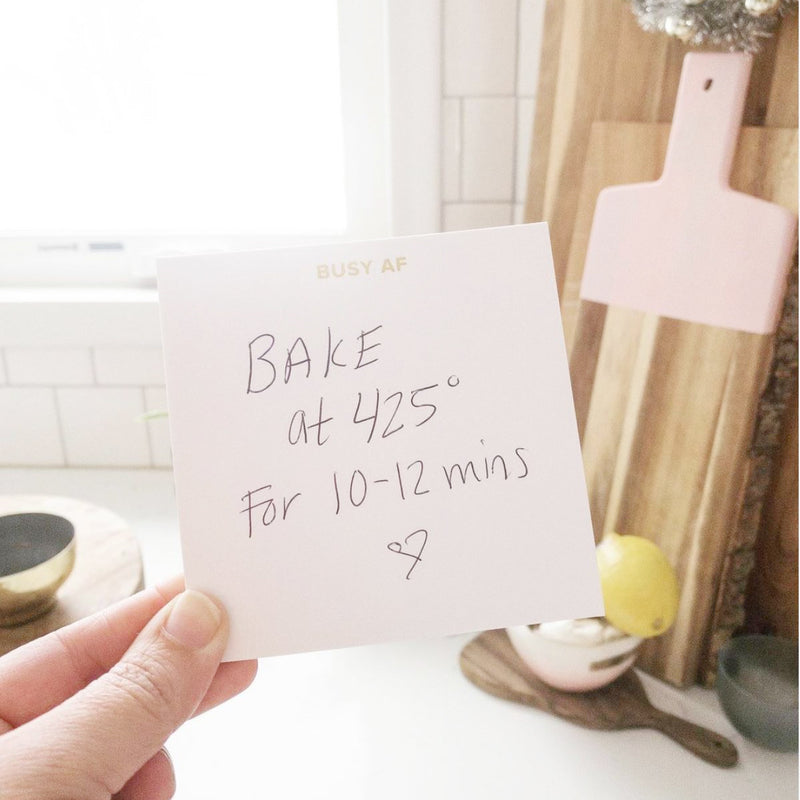 BUSY AF
BAKE
at 425°
For 10-12 mins